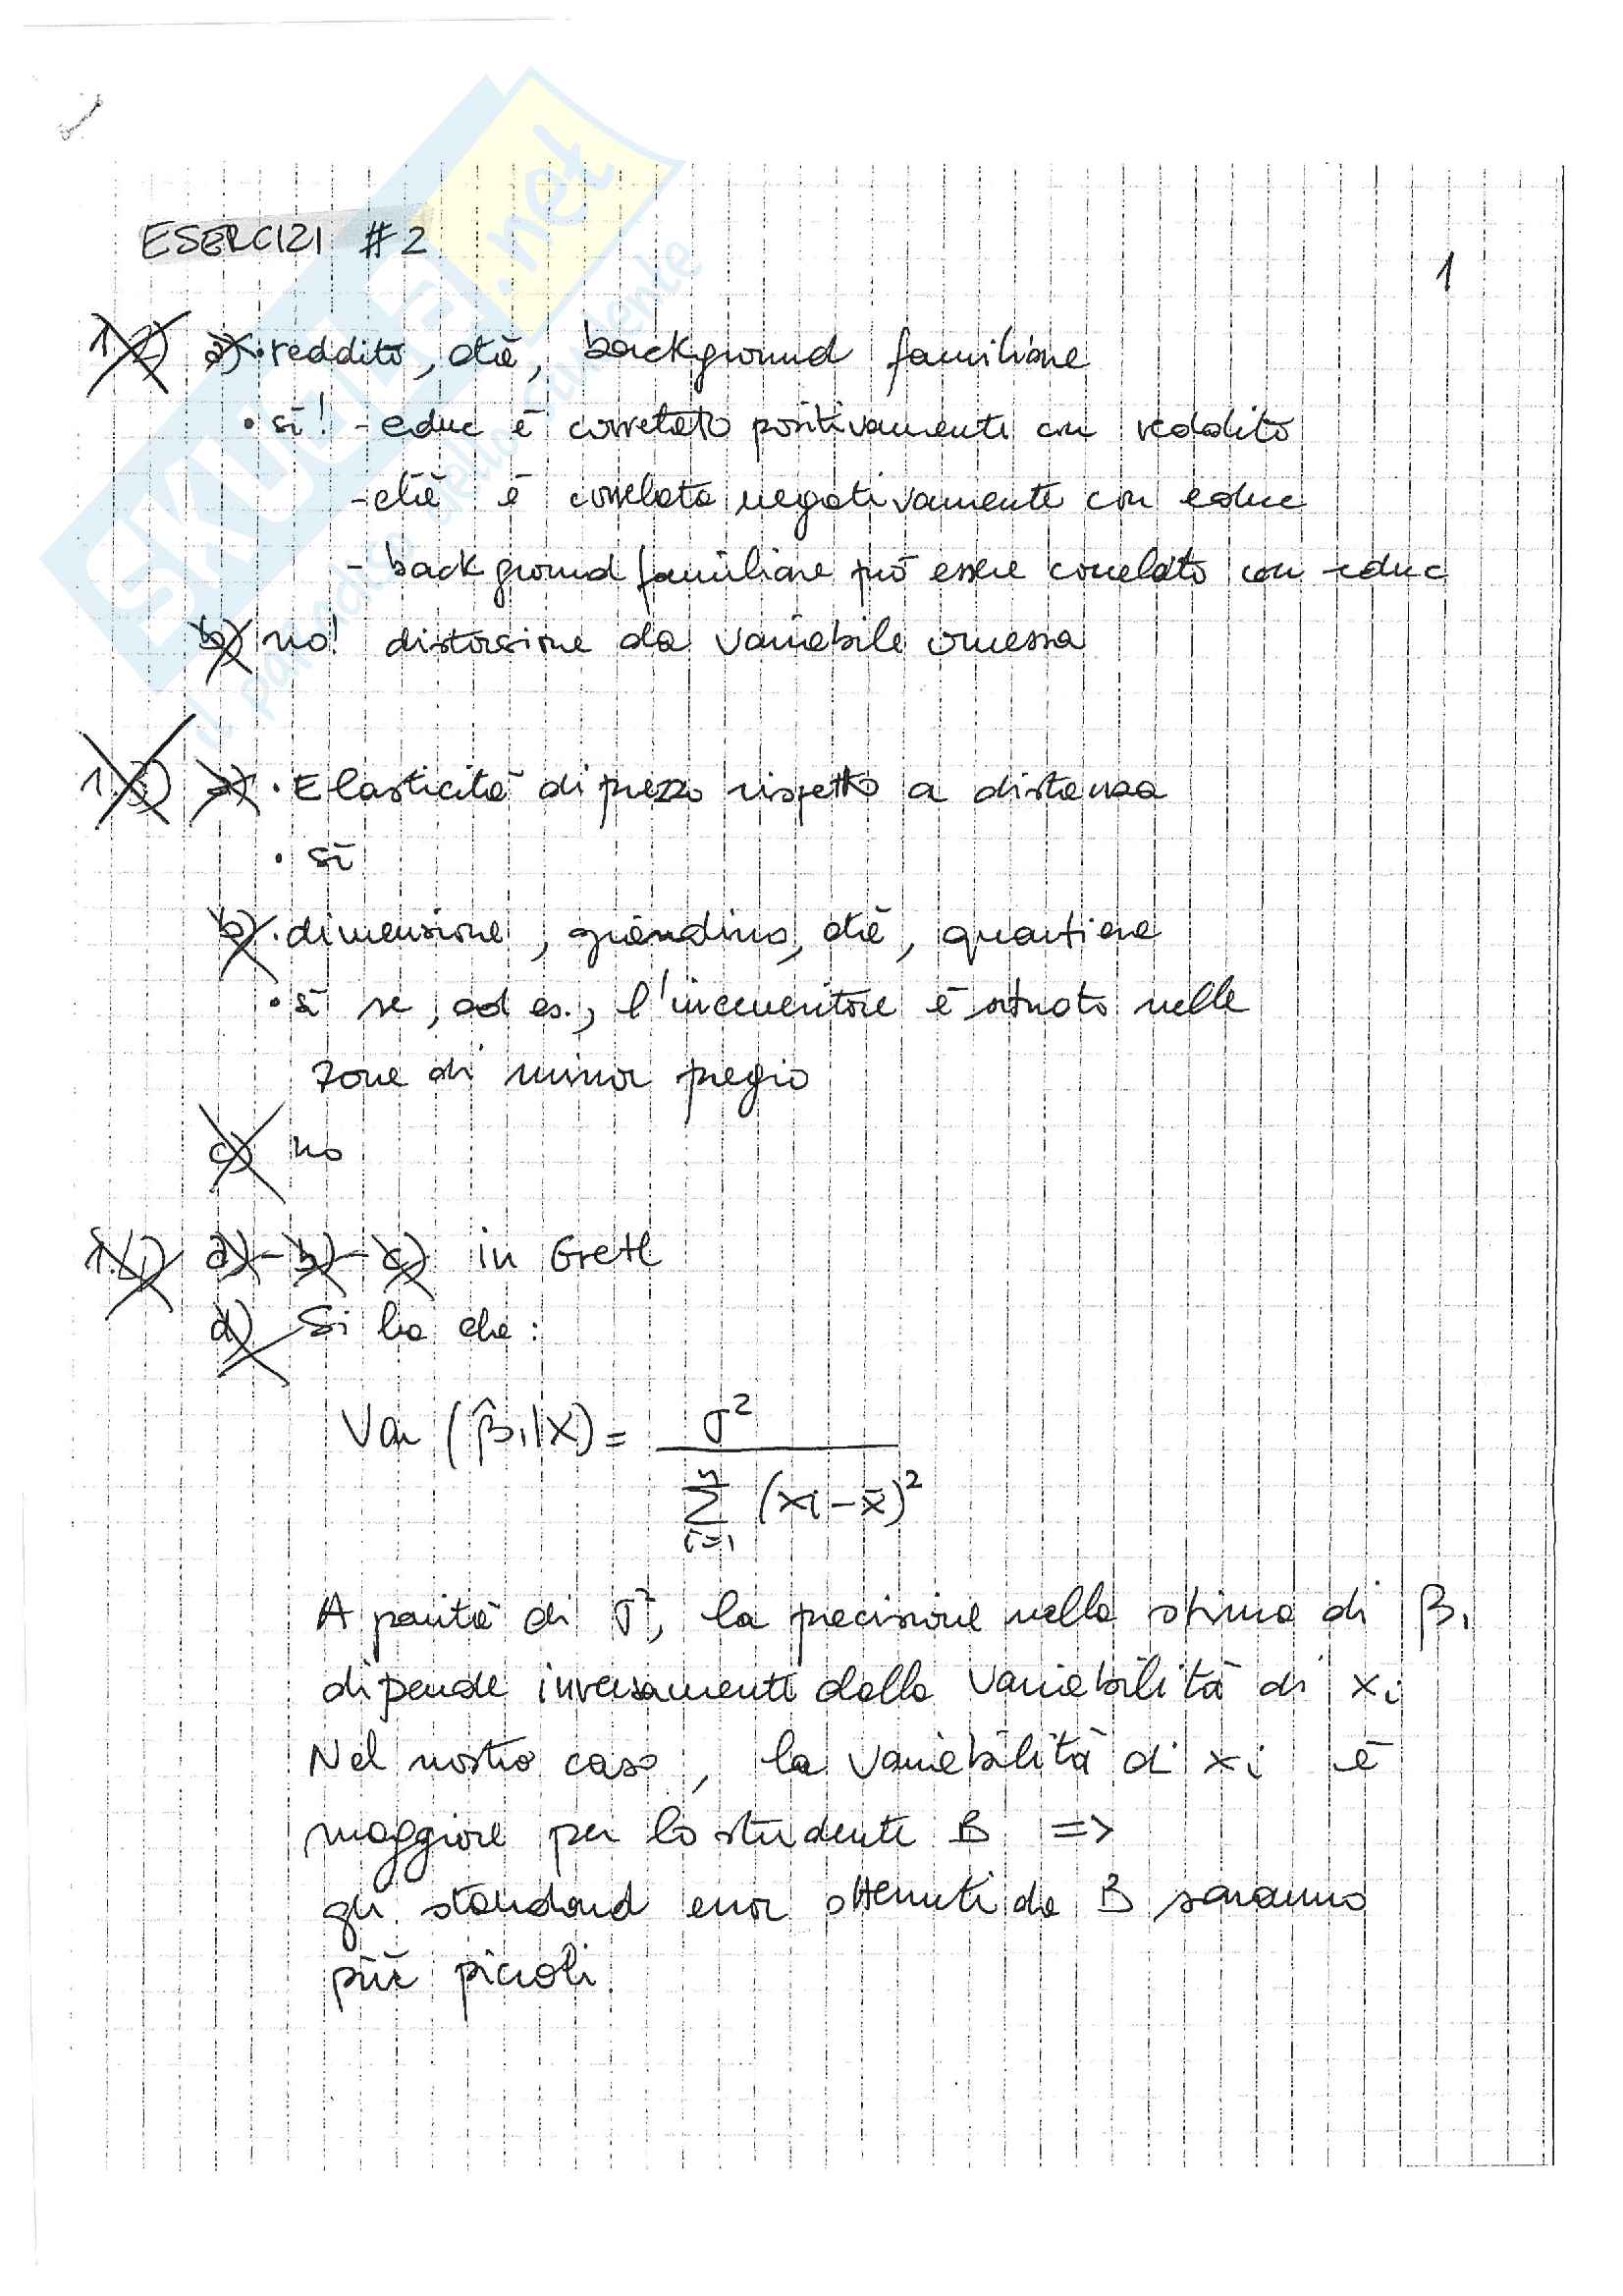 SKUOLA.net
il paradiso dello studente
ESERCIZI #2
1
1.2) a) • reddito, età, background familiare
• sì! - educ è correlato positivamente con reddito
- età è correlata negativamente con educ
- background familiare può essere correlato con educ
b) no! distorsione da variabile omessa
1.3) a) • Elasticità di prezzo rispetto a distanza
• sì
b) • dimensione, giardino, età, quartiere
• sì se, ad es., l'inceneritore è situato nelle
zone di minor pregio
c) no
1.4) a) - b) - c) in Gretl
d) Si ha che:
Var (β̂₁|X) = σ² / Σⁿᵢ₌₁ (xi - x̄)²
A parità di σ², la precisione nella stima di β₁
dipende inversamente dalla variabilità di xi
Nel nostro caso, la variabilità di xi è
maggiore per lo studente B =>
gli standard error ottenuti da B saranno
più piccoli.